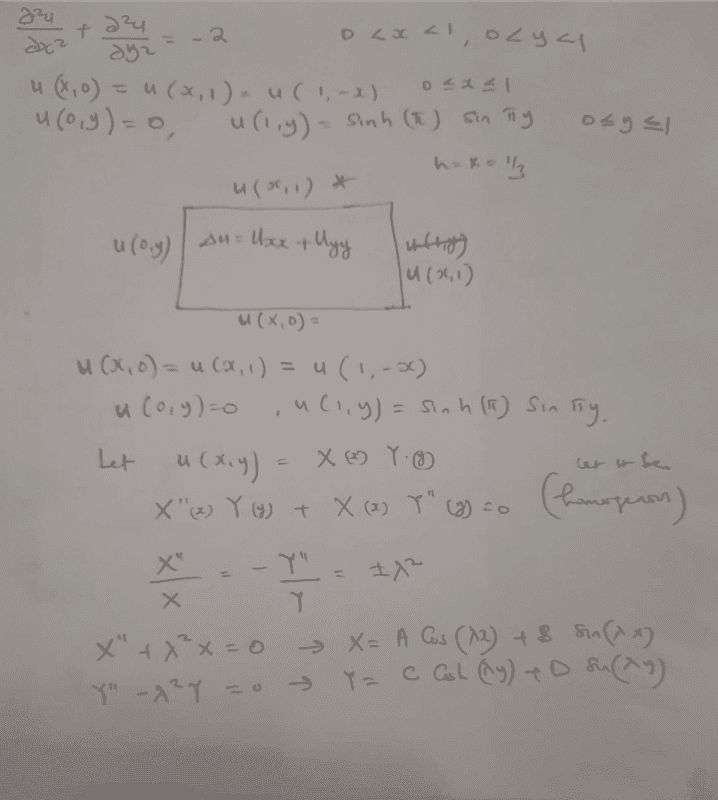 ∂²u/∂x² + ∂²u/∂y² = -2   0 < x < 1, 0 < y < 1
u(x,0) = u(x,1) = u(1,-x)   0 ≤ x ≤ 1
u(0,y) = 0,   u(1,y) = sinh(π) sin πy   0 ≤ y ≤ 1
h = k = 1/3
u(x,1) *
u(0,y)   Δu = Uxx + Uyy   u(1,y)
u(x,1)
u(x,0) =
u(x,0) = u(x,1) = u(1,-x)
u(0,y) = 0   , u(1,y) = sinh(π) Sin πy.
Let   u(x,y) = X(x) Y.(y)   Let it be
X"(x) Y(y) + X(x) Y"(y) = 0   (homogenous)
X"/X = - Y"/Y = ±λ²
X" + λ²X = 0 → X = A Cos(λx) + B Sin(λx)
Y" - λ²Y = 0 → Y = C Cosh(λy) + D Sin(λy)